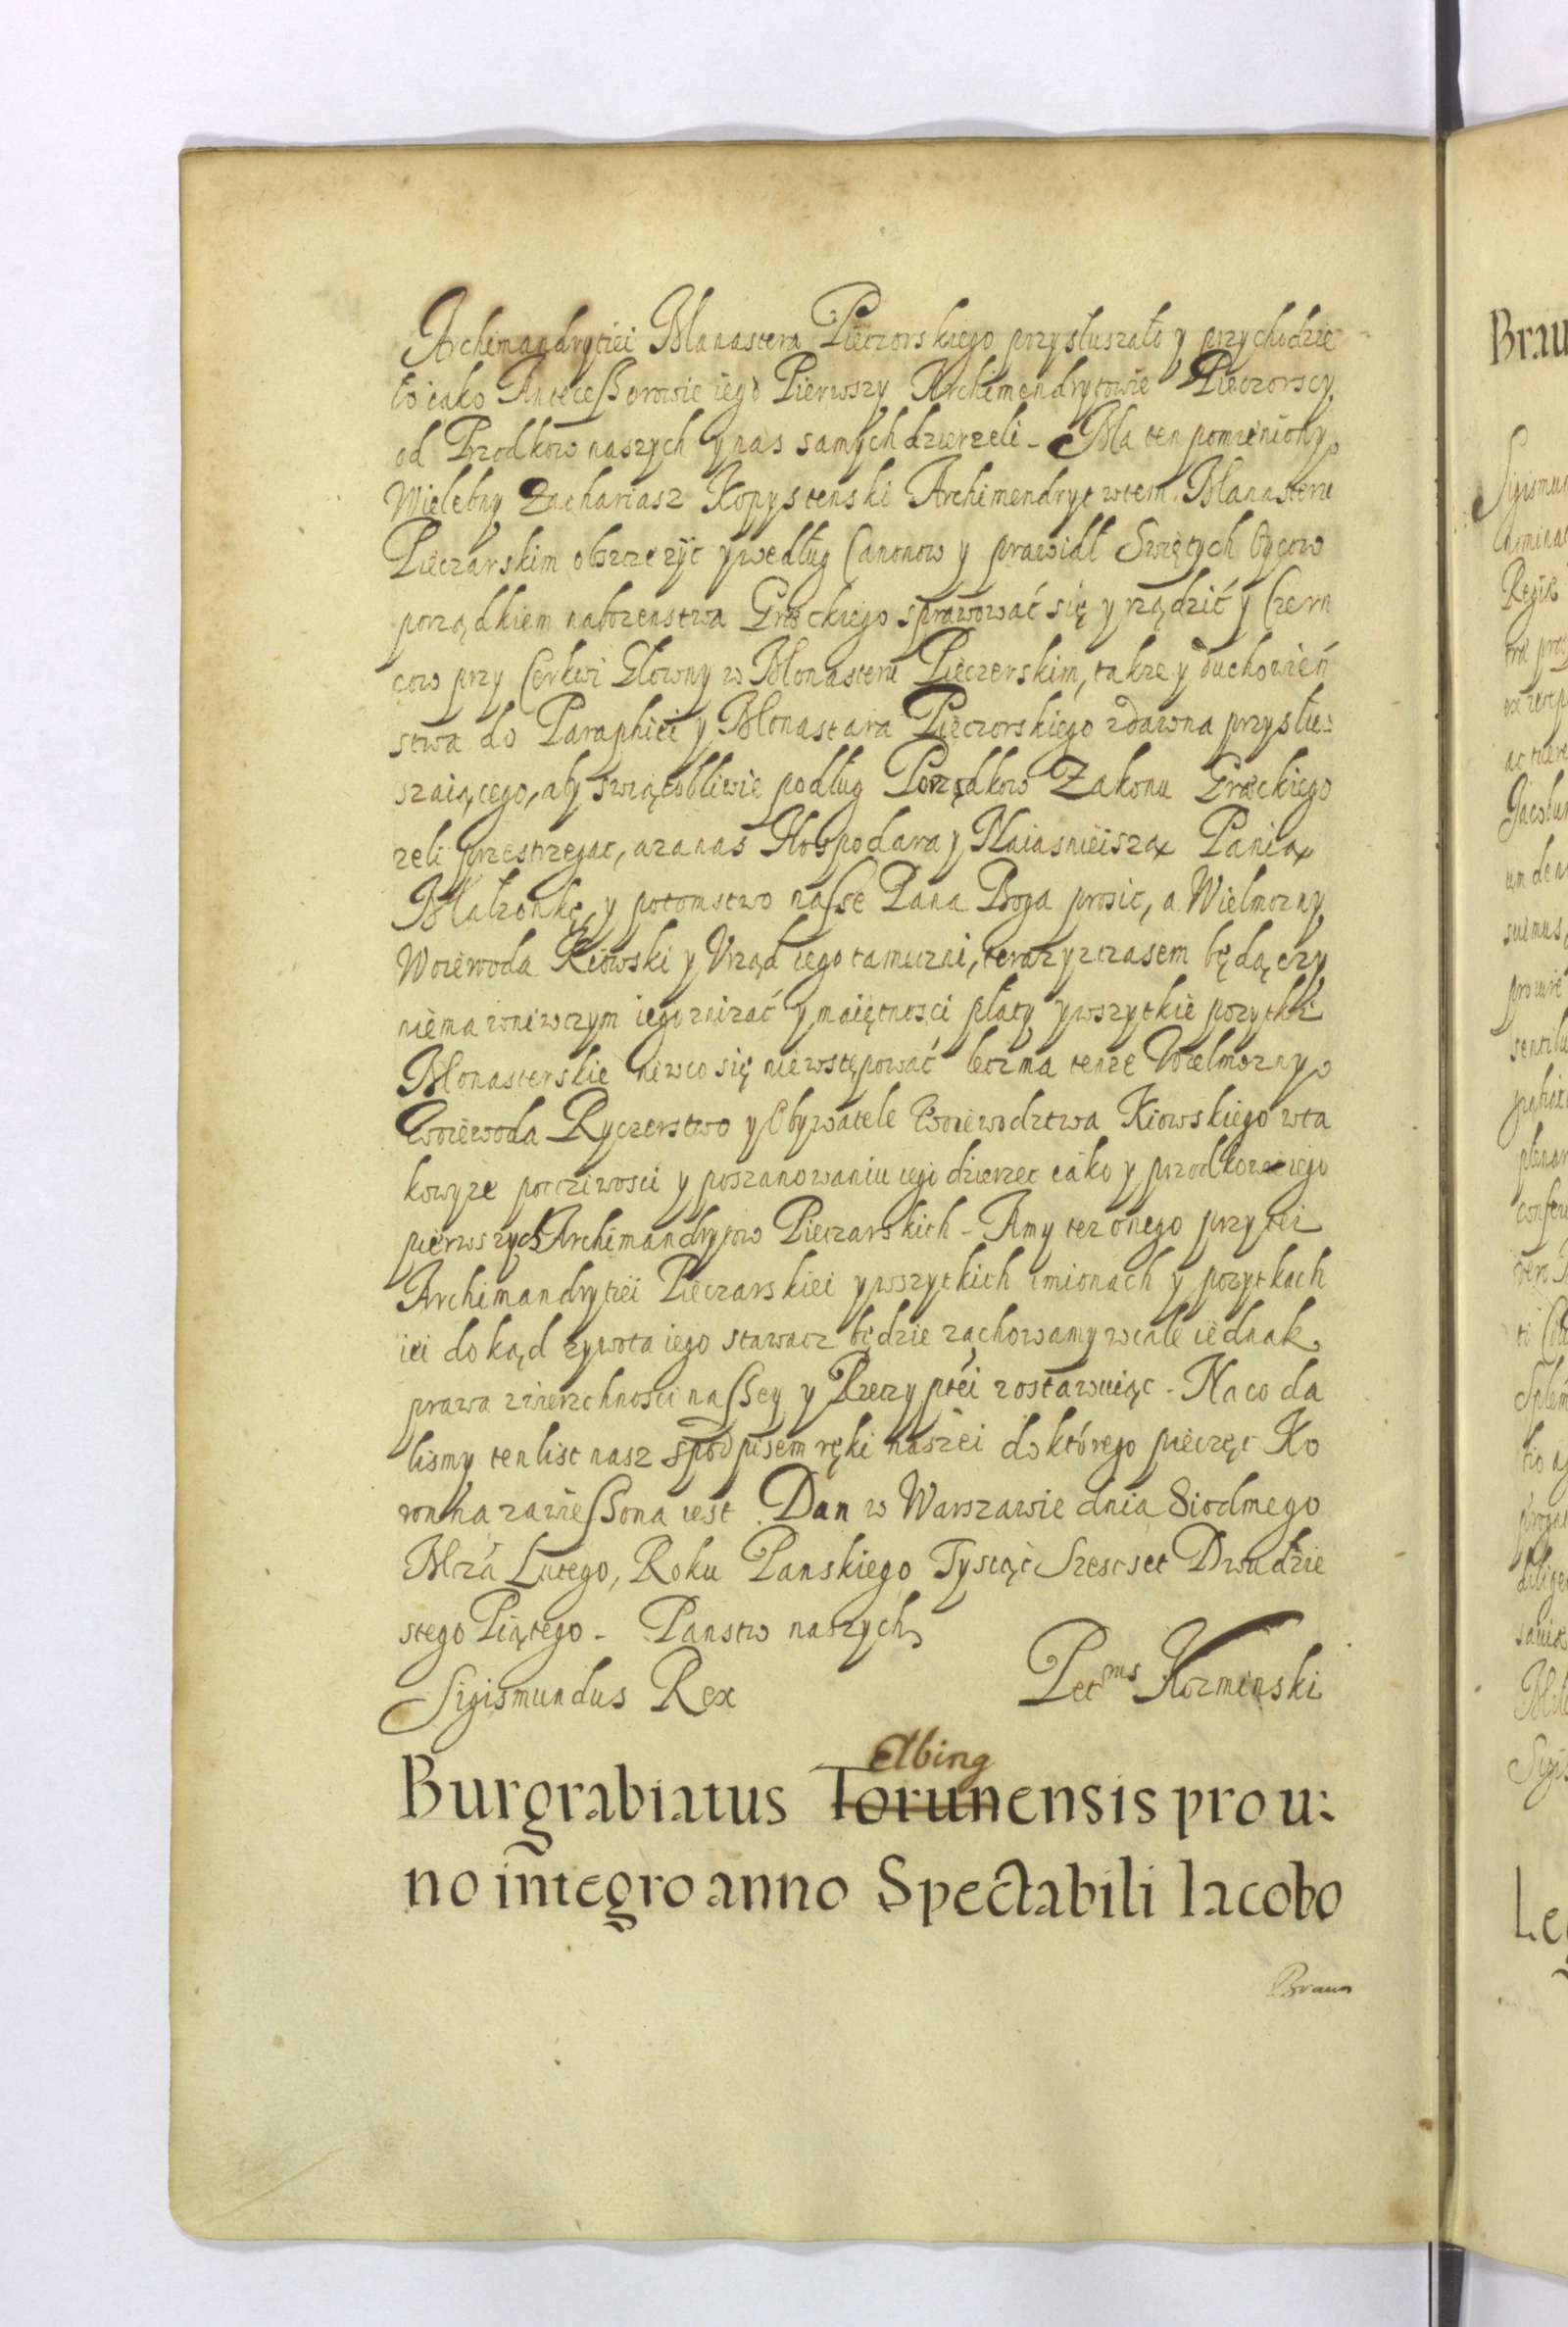 Archimandrytiei Manastera Pieczorskiego przysłuszało y przychodzie
ło iako Antecessorowie iego Pierwszy Archimendrytowie Pieczorscy
od Przodkow naszych y nas samych dzierzeli - Ma ten pomieniony
Wielebny Zachariasz Kopystenski Archimendryt wtem Manasteru
Pieczarskim obszczezyc ywedług Canonow y prawidł Swiętych Oycow
porządkiem nabozenstwa Græckiego sprawować się y rządzić y Czern
cow przy Cerkwi Głowny w Monasteru Pieczerskim, takze y duchowień
stwa do Paraphiei y Monastara Pieczorskiego zdawna przysłu:
szaiącego, aby swiątobliwie podług Porządkow Zakonu Græckiego
zeli przestrzegac, azanas Hospodara y Naiasnieiszą Panią
Małzonkę, y potomstwo nasse Pana Boga prosic, a Wielmozny
Woiewoda Kiowski y Vrząd iego tamuzni, teraz yzczasem będączy
niema wniwczym iego znizać y maiętnosci płaty ywszytkie pozytki
Monasterskie niwco się niewstępować lecz ma tenze Wielmozny
Woiewoda Ryczerstwo y Obywatele Woiewodztwa Kiowskiego wta
kowyze poczciwosci y poszanowaniu iego dzierzec iako y przodkow iego
pierwszych Archimandrytow Pieczarskich - Amy tez onego przy tei
Archimandrytiei Pieczarskiei ywszytkich imionach y pozytkach
iei dokąd zywota iego stawacz będzie zachowamy wcale iednak
prawa zwierzchnosci nassey y Rzeczyptei zostawuiąc - Na co da
lismy ten list nasz spodpisem ręki naszei do którego pieczęc Ko
ronna zawiessona iest Dan w Warszawie dnia Siodmego
Mcza Lutego, Roku Panskiego Tysiąc Szescset Dwudzie
stego Piątego - Panstw naszych
Sigismundus Rex Petrus Kozmenski
Elbing
Burgrabiatus Torunensis pro u:
no integro anno Spectabili Iacobo
Braun
Brau